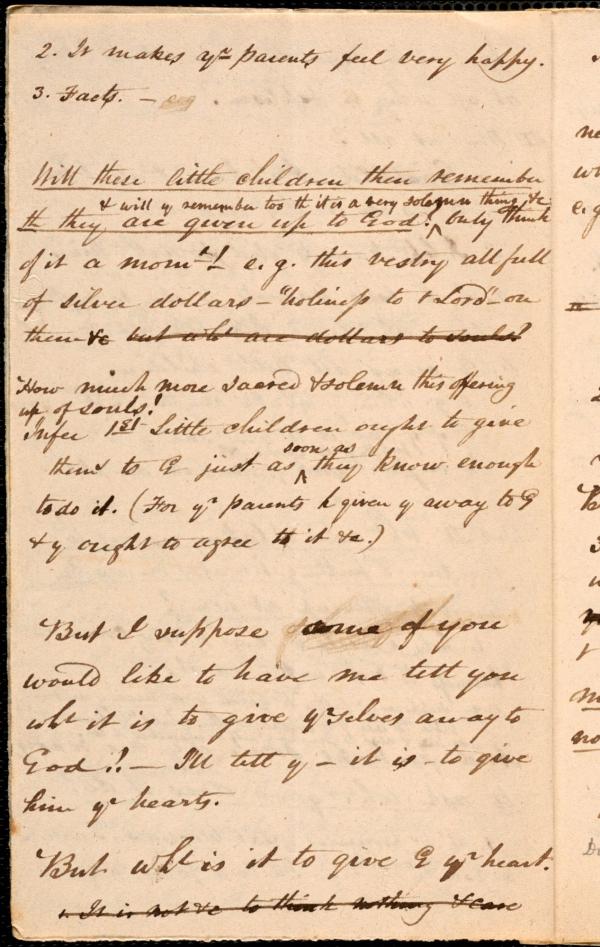 2. It makes yr parents feel very happy.
3. Facts. – e.g
Will these little children then remember
& will y remember too th it is a very solemn thing, &c
th they are given up to God! only think
of it a momt! e.g. this vestry all full
of silver dollars – "holiness to t Lord" on
them &c but wht are dollars to souls?
How much more sacred & solemn this offering
up of souls!
Infer 1st Little children ought to give
soon as
thems to G just as they know enough
to do it. (For yr parents h given y away to G
& y ought to agree to it &c.)
But I suppose some of you
would like to have me tell you
wht it is to give yrselves away to
God!! – I'll tell y – it is – to give
him yr hearts.
But wht is it to give G yr heart.
1. It is not &c to think nothing & care
ne
wi
e.g
no